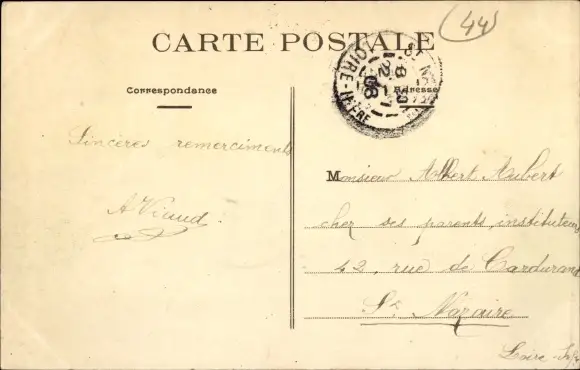 44
CARTE POSTALE
Correspondance
Adresse
LOIRE-INFRE
Sincères remerciments
A Viaud.
Monsieur Albert Aubert
chez ses parents, instituteurs
42, rue de Cardurand
St Nazaire
Loire-Infre